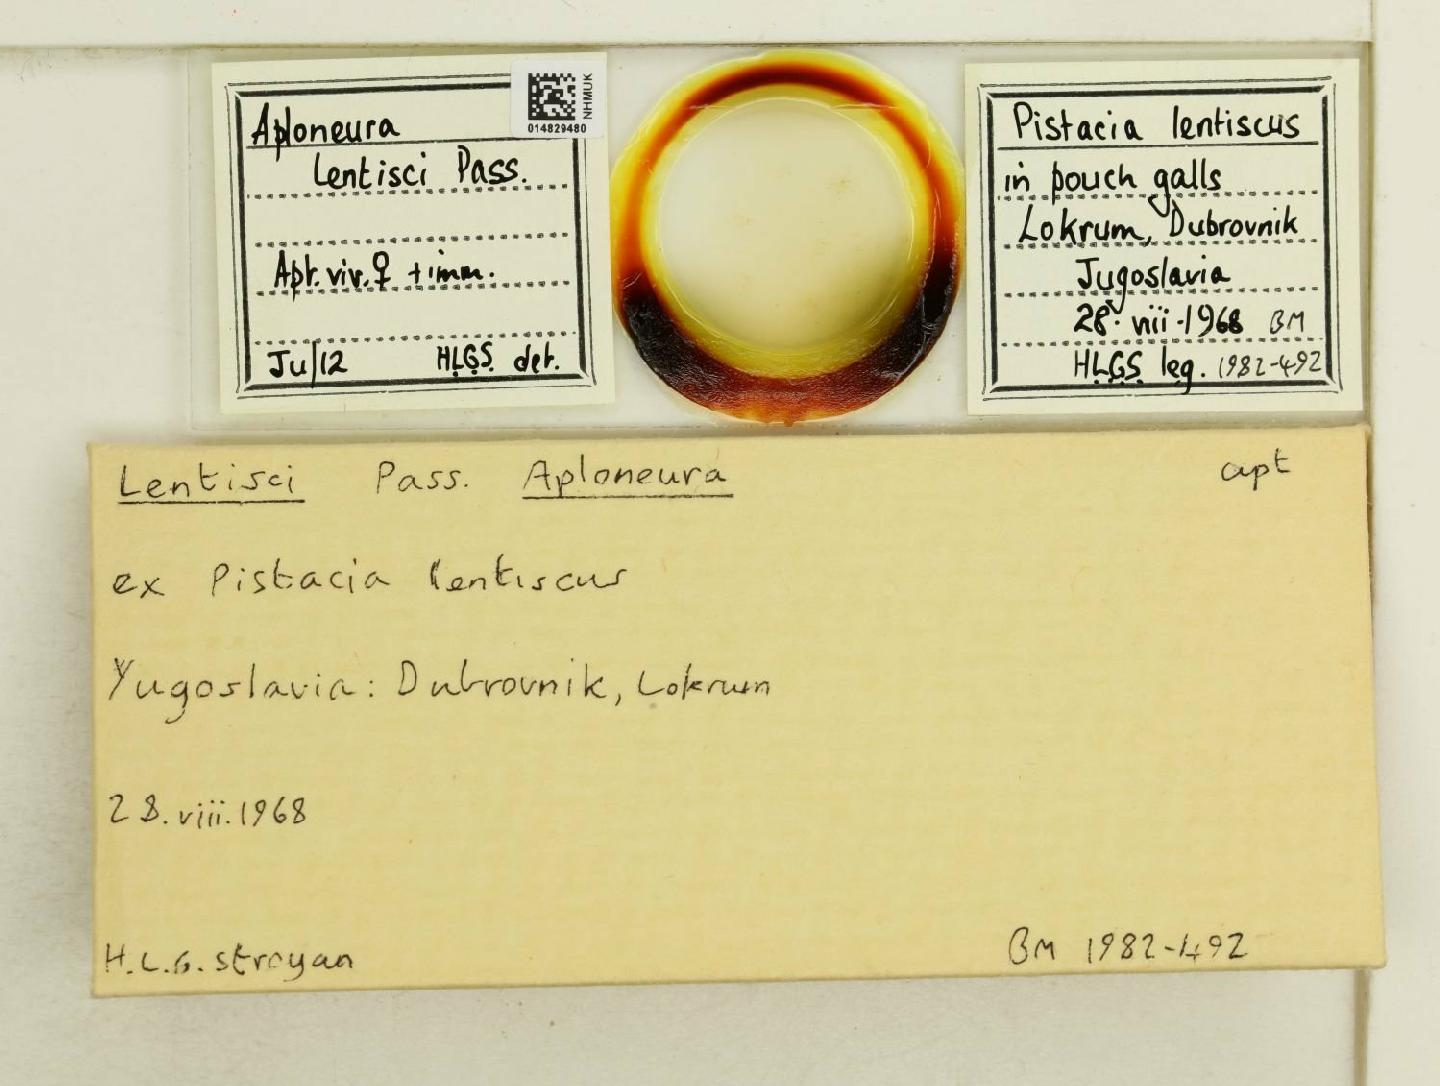 Aploneura
lentisci Pass.
Apt. viv. ♀ + imm.
Ju/12 H.L.G.S. det.
NHMUK
014829480
Pistacia lentiscus
in pouch galls
Lokrum, Dubrovnik
Jugoslavia
28. viii. 1968 BM
H.L.G.S. leg. 1982-492
Lentisci Pass. Aploneura apt
ex Pistacia lentiscus
Yugoslavia: Dubrovnik, Lokrum
28.viii.1968
H.L.G. Stroyan BM 1982-492